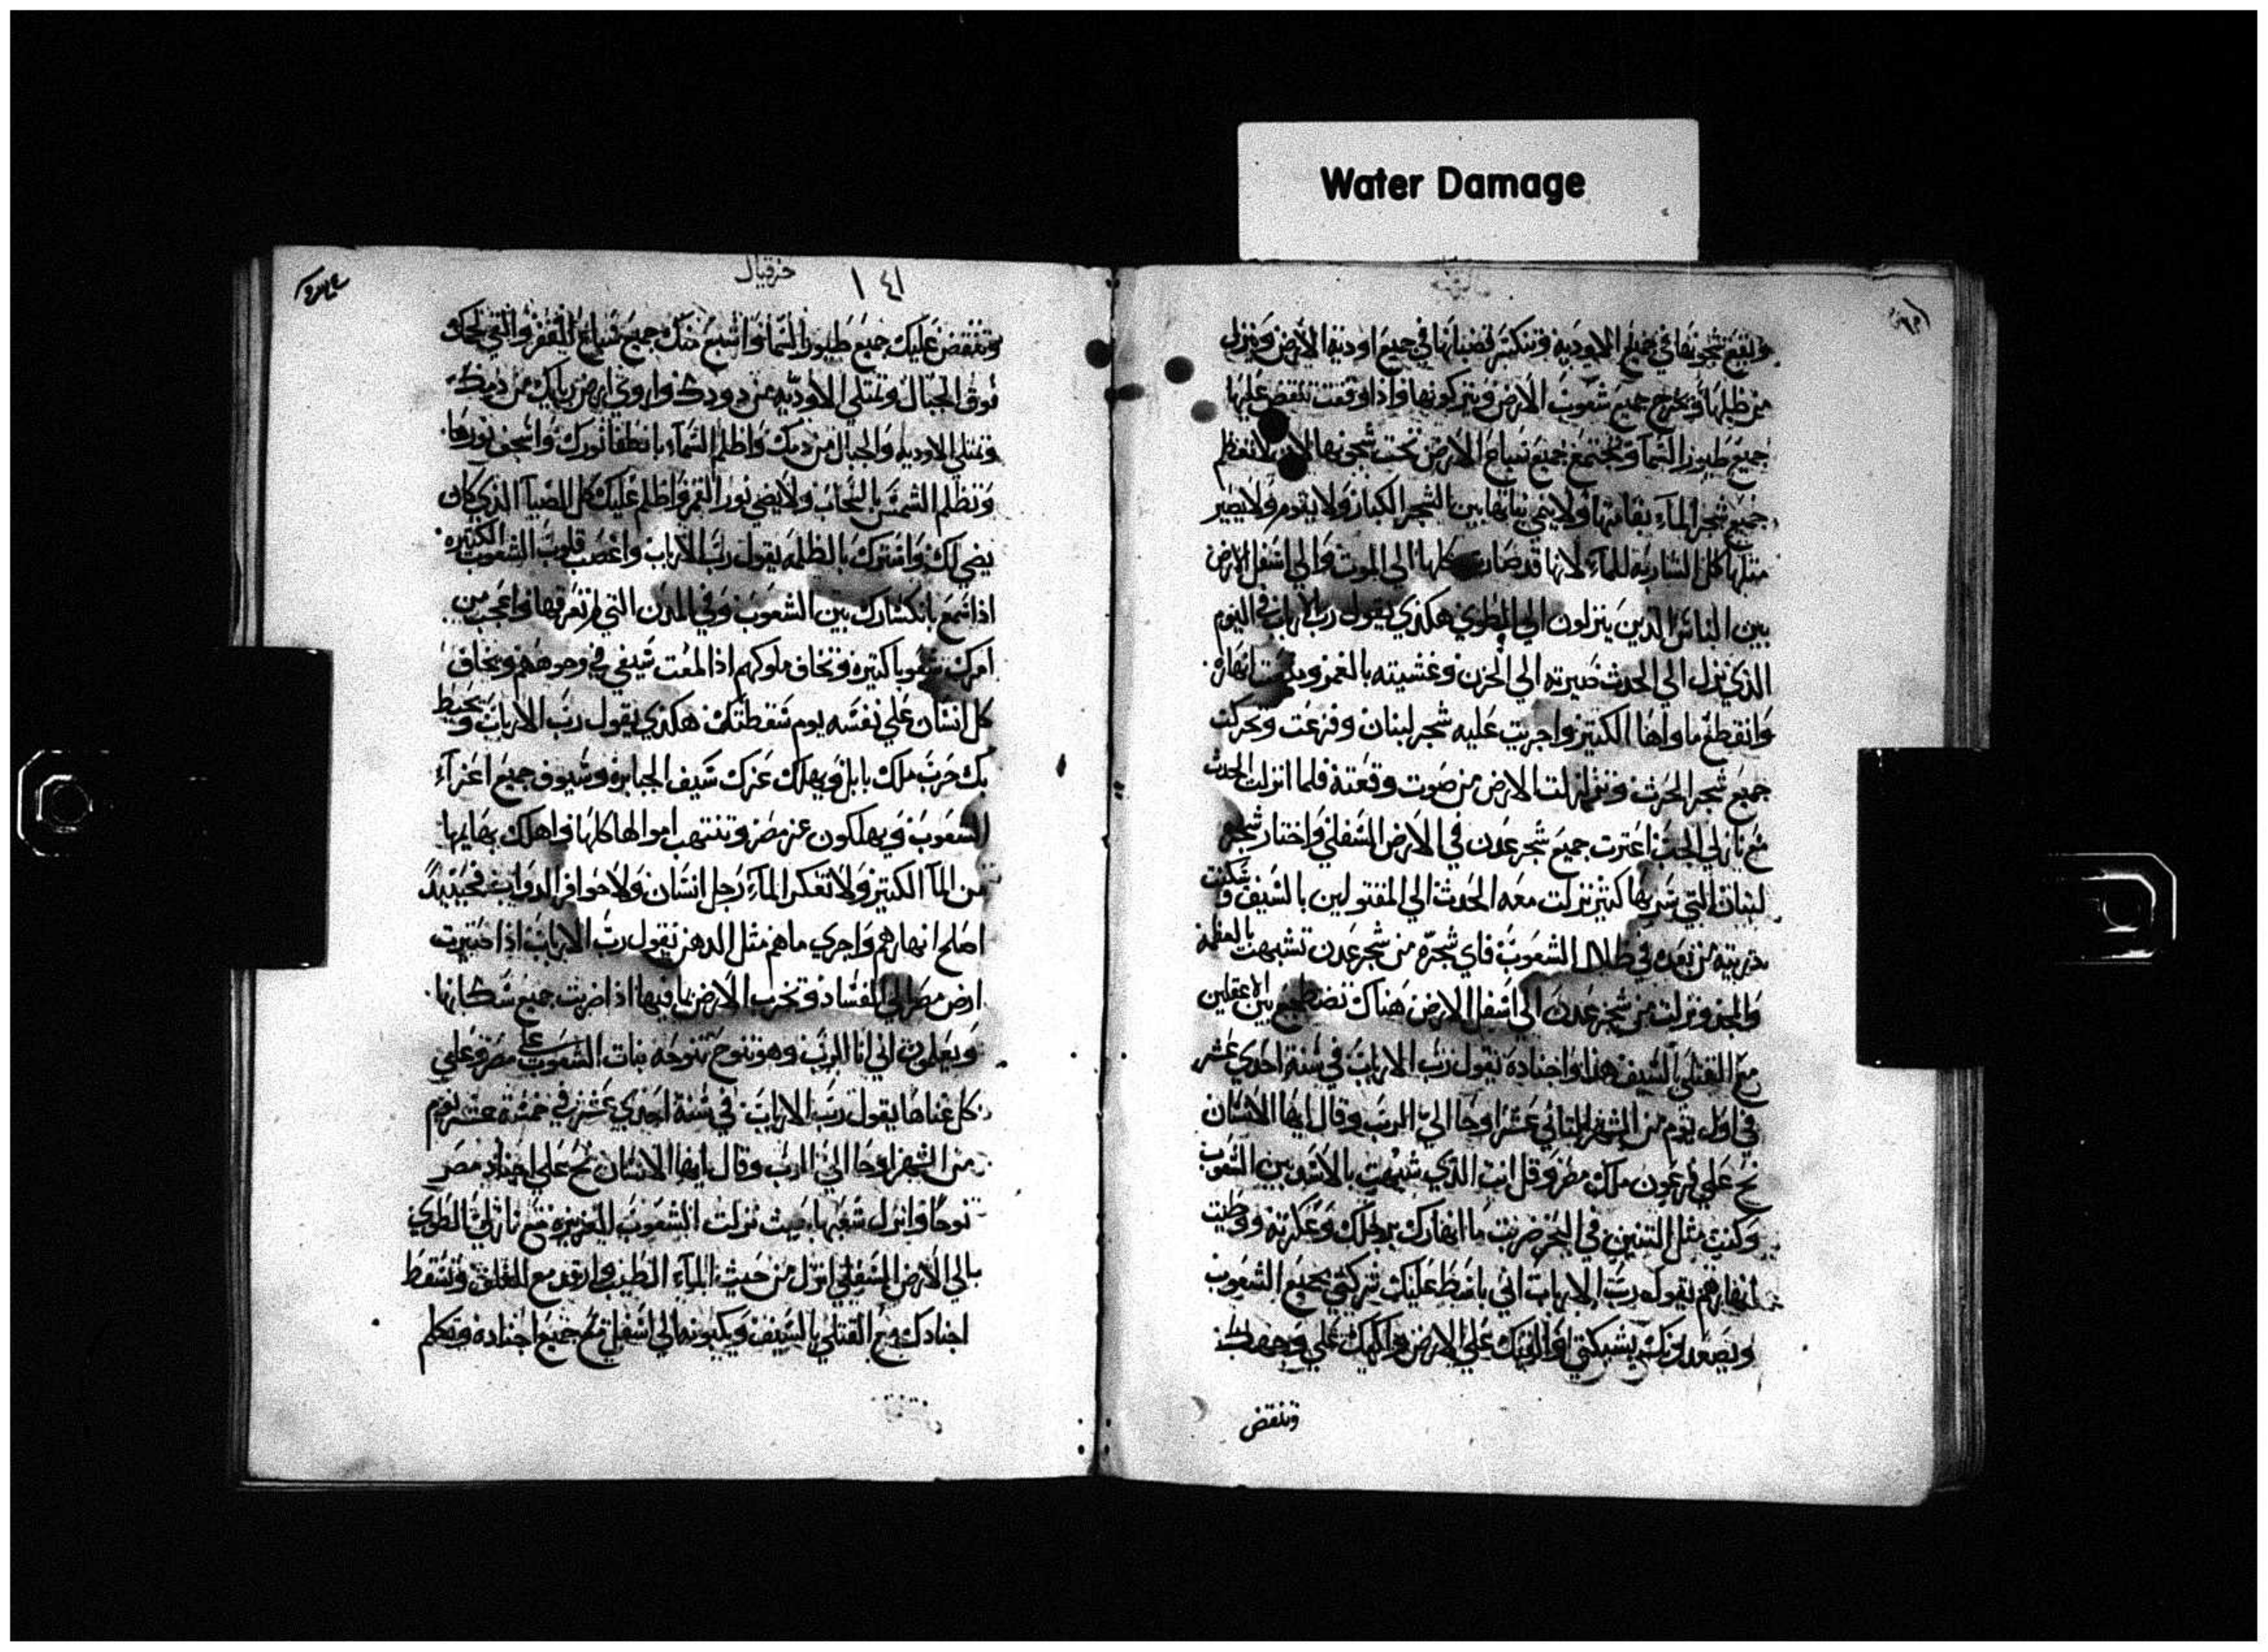 Water Damage
وتقع شجونها في جميع الاوديه وتنكسر قضبانها في جميع اودية الارض وينزل
من ظلها ويخرج جميع شعوب الارض ويتركونها واذا وقعت تنقض عليها
جميع طيور السما وتجتمع جميع سباع الارض تحت شجونها لان لا تعظم
جميع شجر الماء بقاتها ولا ينمي نباتها بين الشجر الكبار ولا يدوم ولا يصير
مثلها كل الشاربه للماء لانها قد صارت كلها الي الموت والي اسفل الارض
بين الناس الدين ينزلون الي المطوي هكدي يقول رب الارباب في اليوم
الذي نزل الي الحدث صيرته الي الحزن وغشيته بالغمر و انهاره
وانقطع ماواها الكتير واجريت عليه شجر لبنان وفزعت وتحركت
جميع شجر الحرث وتزلزلت الارض من صوت وقعته فلما انزلت الحدث
مع نازلي الجب اعترت جميع شجر عدن في الارض السفلي واختار شجر
لبنان التي شربها كثير نزلت معه الحدث الي المقتولين بالسيف و سكنت
دريته من بعده في ظلال الشعوب فاي شجره من شجر عدن تشبهت بالعظمه
والمجد ونزلت من شجر عدن الي اسفل الارض هناك تضطجع بين الاغفلين
مع القتلي السيف هذا واجناده يقول رب الارباب في سنة احدي عشر
في اول يوم من الشهر التاني عشر اوحا الي الرب وقال ايها الانسان
نح علي فرعون ملك مصر وقل انت الذي شبهت بالاسد بين الشعوب
وكنت مثل التنين في البحر ضربت ما انهارك برجلك وعكرته ووطيت
انهارهم يقول رب الارباب اني باسط عليك شركتي بجميع الشعوب
ويصعدونك بشبكتي والقيك علي الارض واكبك علي وجهك
وتنقض
حزقيال
١٤١
وتنقض عليك جميع طيور السما واشبع منك جميع سباع القفر والقي لحمك
فوق الجبال وتمتلي الاوديه من دودك واروي ارض من دمك
وتمتلي الاوديه والجبال من دمك واظلم السماء بانطفا نورك واسجف نورها
وتظلم الشمس بالسحاب ولا يضي نور القمر واظلم عليك كل الضيا الذي كان
يضي لك واسترك بالظلمه يقول رب الارباب واغضب قلوب الشعوب الكتيره
اذا سمع بانكسارك بين الشعوب وفي المدن التي لم تعرفها واعجب من
امرك شعوبا كتيره وتخاف ملوكهم اذا المعت سيفي في وجوههم ويخاف
كل انسان علي نفسه يوم سقطتك هكدي يقول رب الارباب ويحيط
بك حرب ملك بابل ويهلك عزك سيف الجبابره وسيوف جميع اعزاء
الشعوب ويهلكون عز مصر وتنتهب اموالها كلها واهلك بهايمها
من الما الكتير ولا تعكر الماء رجل انسان ولا حوافر الدواب فحينيد
اصلح انهارهم واجري ماهم مثل الدهن يقول رب الارباب اذا صيرت
ارض مصر الي الفساد وتخرب الارض بما فيها اذا ضربت جميع سكانها
ويعلمون اني انا الرب وهو نوح تنوحه بنات الشعوب علي مصر وعلي
كل غناها يقول رب الارباب في سنة احدي عشر في خمسة عشر يوم
من الشهر اوحا الي الرب وقال ايها الانسان نح علي اجناد مصر
نوحا وانزل شعبها حيث نزلت الشعوب العزيزه مع نازلي الطوي
الي الارض السفلي انزل من حيث الماء الطيب وارقد مع الغلف وتسقط
اجنادك مع القتلي بالسيف ويكبونه الي اسفل مع جميع اجناده وتكلم